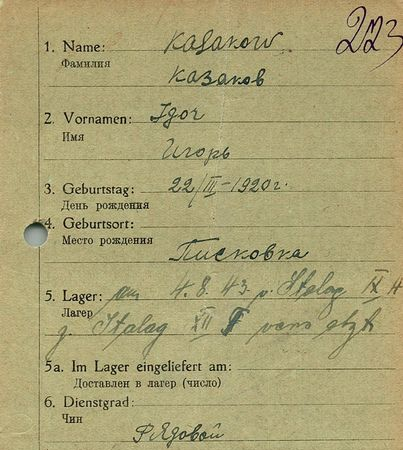 223
1. Name: Kasakow
Фамилия
Казаков
2. Vornamen: Igor
Имя
Игорь
3. Geburtstag: 22/III-1920 г.
День рождения
4. Geburtsort:
Место рождения
Писковка
5. Lager: am 4.8.43 v. Stalag IX A
Лагер
z. Stalag XII F
5a. Im Lager eingeliefert am:
Доставлен в лагер (число)
6. Dienstgrad:
Чин
Рядовой